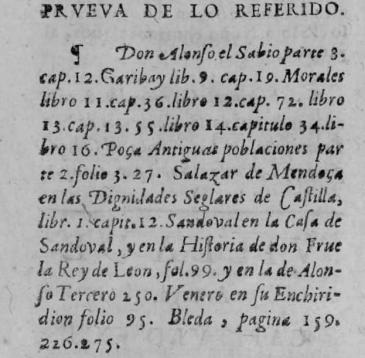 PRVEVA DE LO REFERIDO.
¶ Don Alonso el Sabio parte 3.
cap. 12. Garibay lib. 9. cap. 19. Morales
libro 11. cap. 36. libro 12. cap. 72. libro
13. cap. 13. 55. libro 14. capitulo 34. li-
bro 16. Poça Antiguas poblaciones par
te 2. folio 3. 27. Salazar de Mendoça
en las Dignidades Seglares de Castilla,
libr. 1. capit. 12. Sandoval en la Casa de
Sandoval, y en la Historia de don Frue
la Rey de Leon, fol. 99. y en la de Alon-
so Tercero 250. Venero en su Enchiri-
dion folio 95. Bleda, pagina 159.
226. 275.